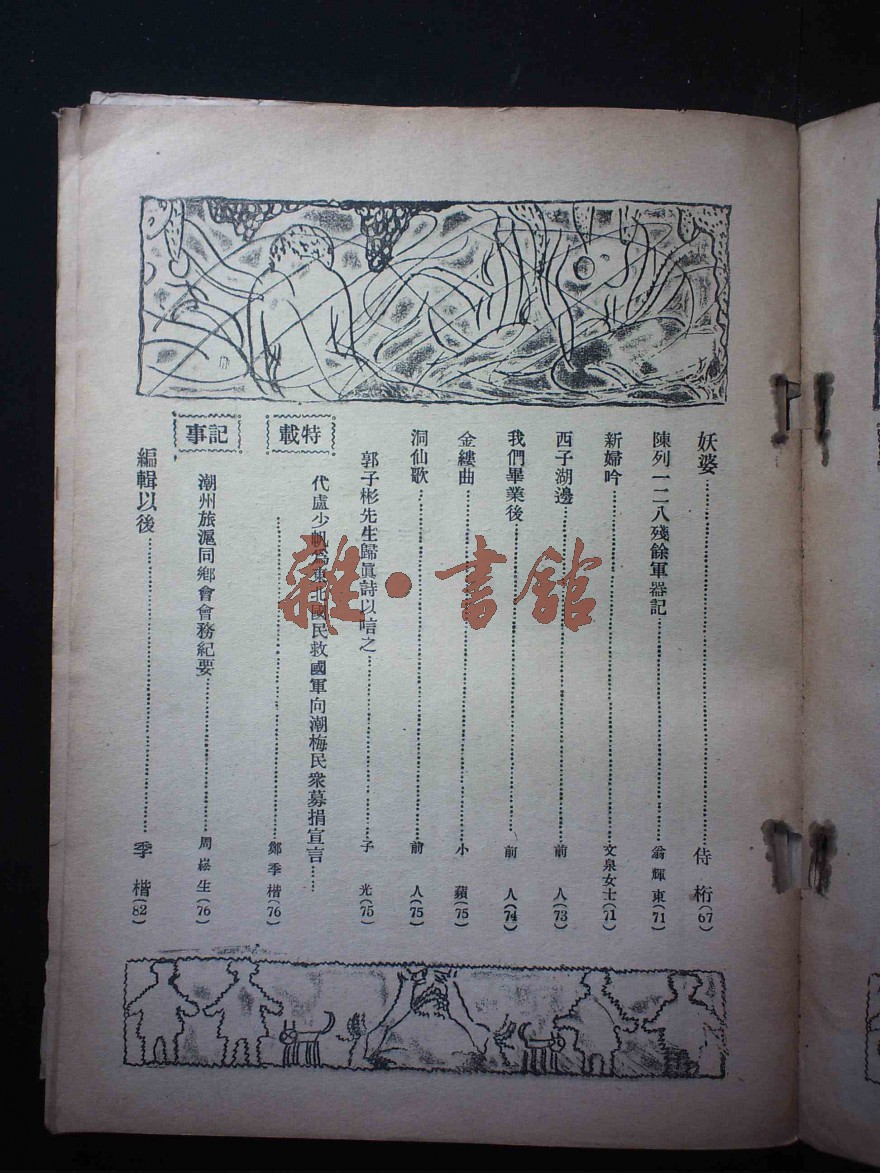 妖婆……侍桁(67)
陳列一二八殘餘軍器記……翁輝東(71)
新婦吟……文泉女士(71)
西子湖邊……前人(73)
我們畢業後……前人(74)
金縷曲……小蘋(75)
洞仙歌……前人(75)
郭子彬先生歸眞詩以唁之……子光(75)
特載
代盧少帆爲東北國民救國軍向潮梅民衆募捐宣言……
……鄭季楷(76)
記事
潮州旅滬同鄉會會務紀要……周崧生(76)
編輯以後……季楷(82)
雜·書館